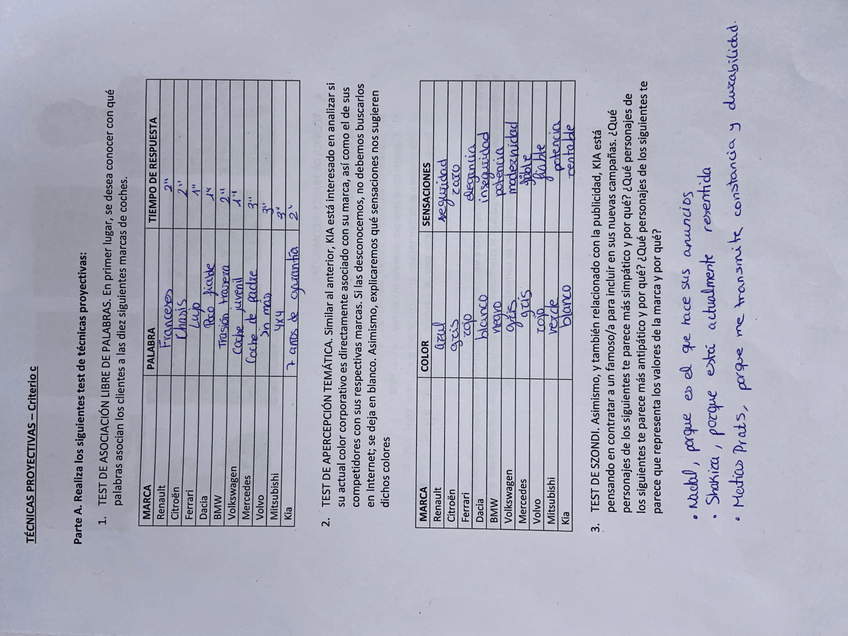 TÉCNICAS PROYECTIVAS – Criterio c
Parte A. Realiza los siguientes test de técnicas proyectivas:
1. TEST DE ASOCIACIÓN LIBRE DE PALABRAS. En primer lugar, se desea conocer con qué
palabras asocian los clientes a las diez siguientes marcas de coches.
MARCA PALABRA TIEMPO DE RESPUESTA
Renault Franceses 2"
Citroën Chasis 2"
Ferrari Lujo 1"
Dacia Poco fiable 1"
BMW Trasión trasera 2"
Volkswagen Coche juvenil 1"
Mercedes Coche de padre 3"
Volvo 3"
Mitsubishi 4x4 3"
Kia 7 años de garantía 2"
2. TEST DE APERCEPCIÓN TEMÁTICA. Similar al anterior, KIA está interesado en analizar si
su actual color corporativo es directamente asociado con su marca, así como el de sus
competidores con sus respectivas marcas. Si las desconocemos, no debemos buscarlos
en Internet; se deja en blanco. Asimismo, explicaremos qué sensaciones nos sugieren
dichos colores
MARCA COLOR SENSACIONES
Renault azul seguridad
Citroën gris caro
Ferrari rojo elegancia
Dacia blanco inseguridad
BMW negro potencia
Volkswagen gris modernidad
Mercedes gris fiable
Volvo rojo fiable
Mitsubishi verde potencia
Kia blanco rentable
3. TEST DE SZONDI. Asimismo, y también relacionado con la publicidad, KIA está
pensando en contratar a un famoso/a para incluir en sus nuevas campañas. ¿Qué
personajes de los siguientes te parece más simpático y por qué? ¿Qué personajes de
los siguientes te parece más antipático y por qué? ¿Qué personajes de los siguientes te
parece que representa los valores de la marca y por qué?
• Nadal, porque es el que hace sus anuncios
• Shakira, porque está actualmente resentida
• Matías Prats, porque me transmite constancia y durabilidad.